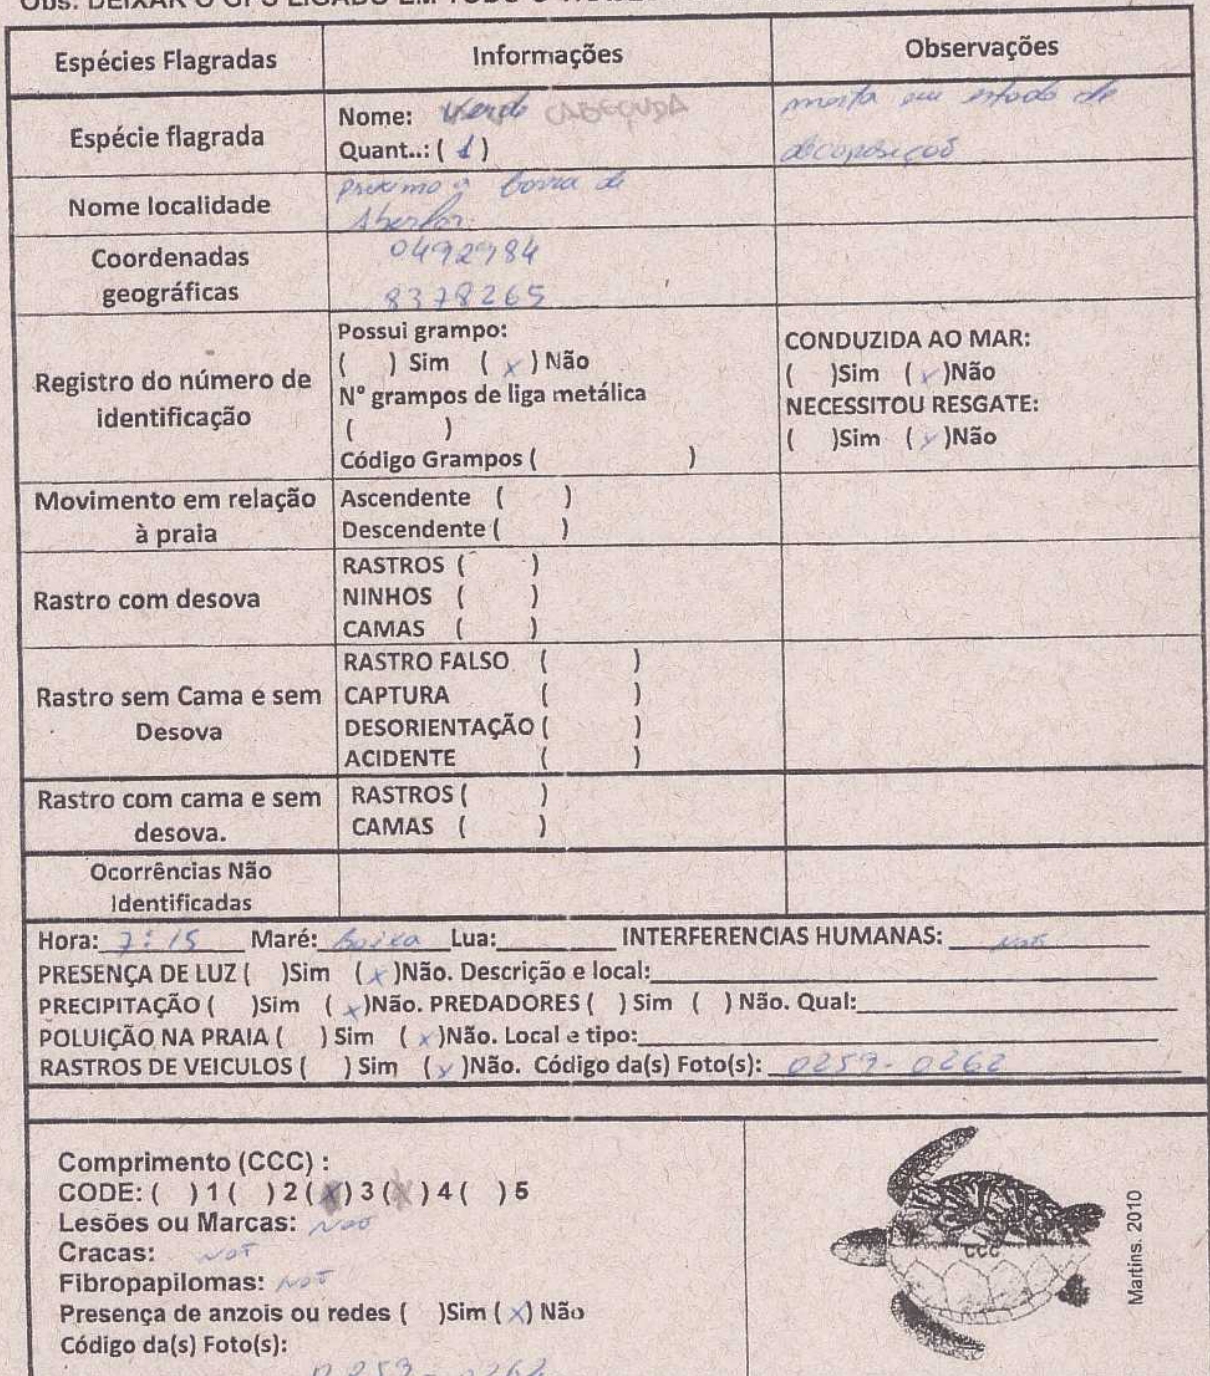 Espécies Flagradas Informações Observações
Espécie flagrada
Nome: Verde CABEÇUDA
Quant..: ( 1 )
morta em estado de
Nome localidade
proximo a barra de
Coordenadas geográficas
0492984
8378265
Registro do número de identificação
Possui grampo:
( ) Sim ( x ) Não
N° grampos de liga metálica
( )
Código Grampos ( )
CONDUZIDA AO MAR:
( )Sim ( x )Não
NECESSITOU RESGATE:
( )Sim ( x )Não
Movimento em relação à praia
Ascendente ( )
Descendente ( )
Rastro com desova
RASTROS ( )
NINHOS ( )
CAMAS ( )
Rastro sem Cama e sem Desova
RASTRO FALSO ( )
CAPTURA ( )
DESORIENTAÇÃO ( )
ACIDENTE ( )
Rastro com cama e sem desova.
RASTROS ( )
CAMAS ( )
Ocorrências Não Identificadas
Hora: 7:15 Maré: Baixa Lua:______ INTERFERENCIAS HUMANAS: Não
PRESENÇA DE LUZ ( )Sim ( x )Não. Descrição e local:______
PRECIPITAÇÃO ( )Sim ( x )Não. PREDADORES ( ) Sim ( ) Não. Qual:______
POLUIÇÃO NA PRAIA ( ) Sim ( x )Não. Local e tipo:______
RASTROS DE VEICULOS ( ) Sim ( x )Não. Código da(s) Foto(s): 0259-0262
Comprimento (CCC) :
CODE: ( ) 1 ( ) 2 ( x ) 3 ( x ) 4 ( ) 5
Lesões ou Marcas: Não
Cracas: Não
Fibropapilomas: Não
Presença de anzois ou redes ( )Sim ( x ) Não
Código da(s) Foto(s):
0259-0262
CCC
Martins. 2010